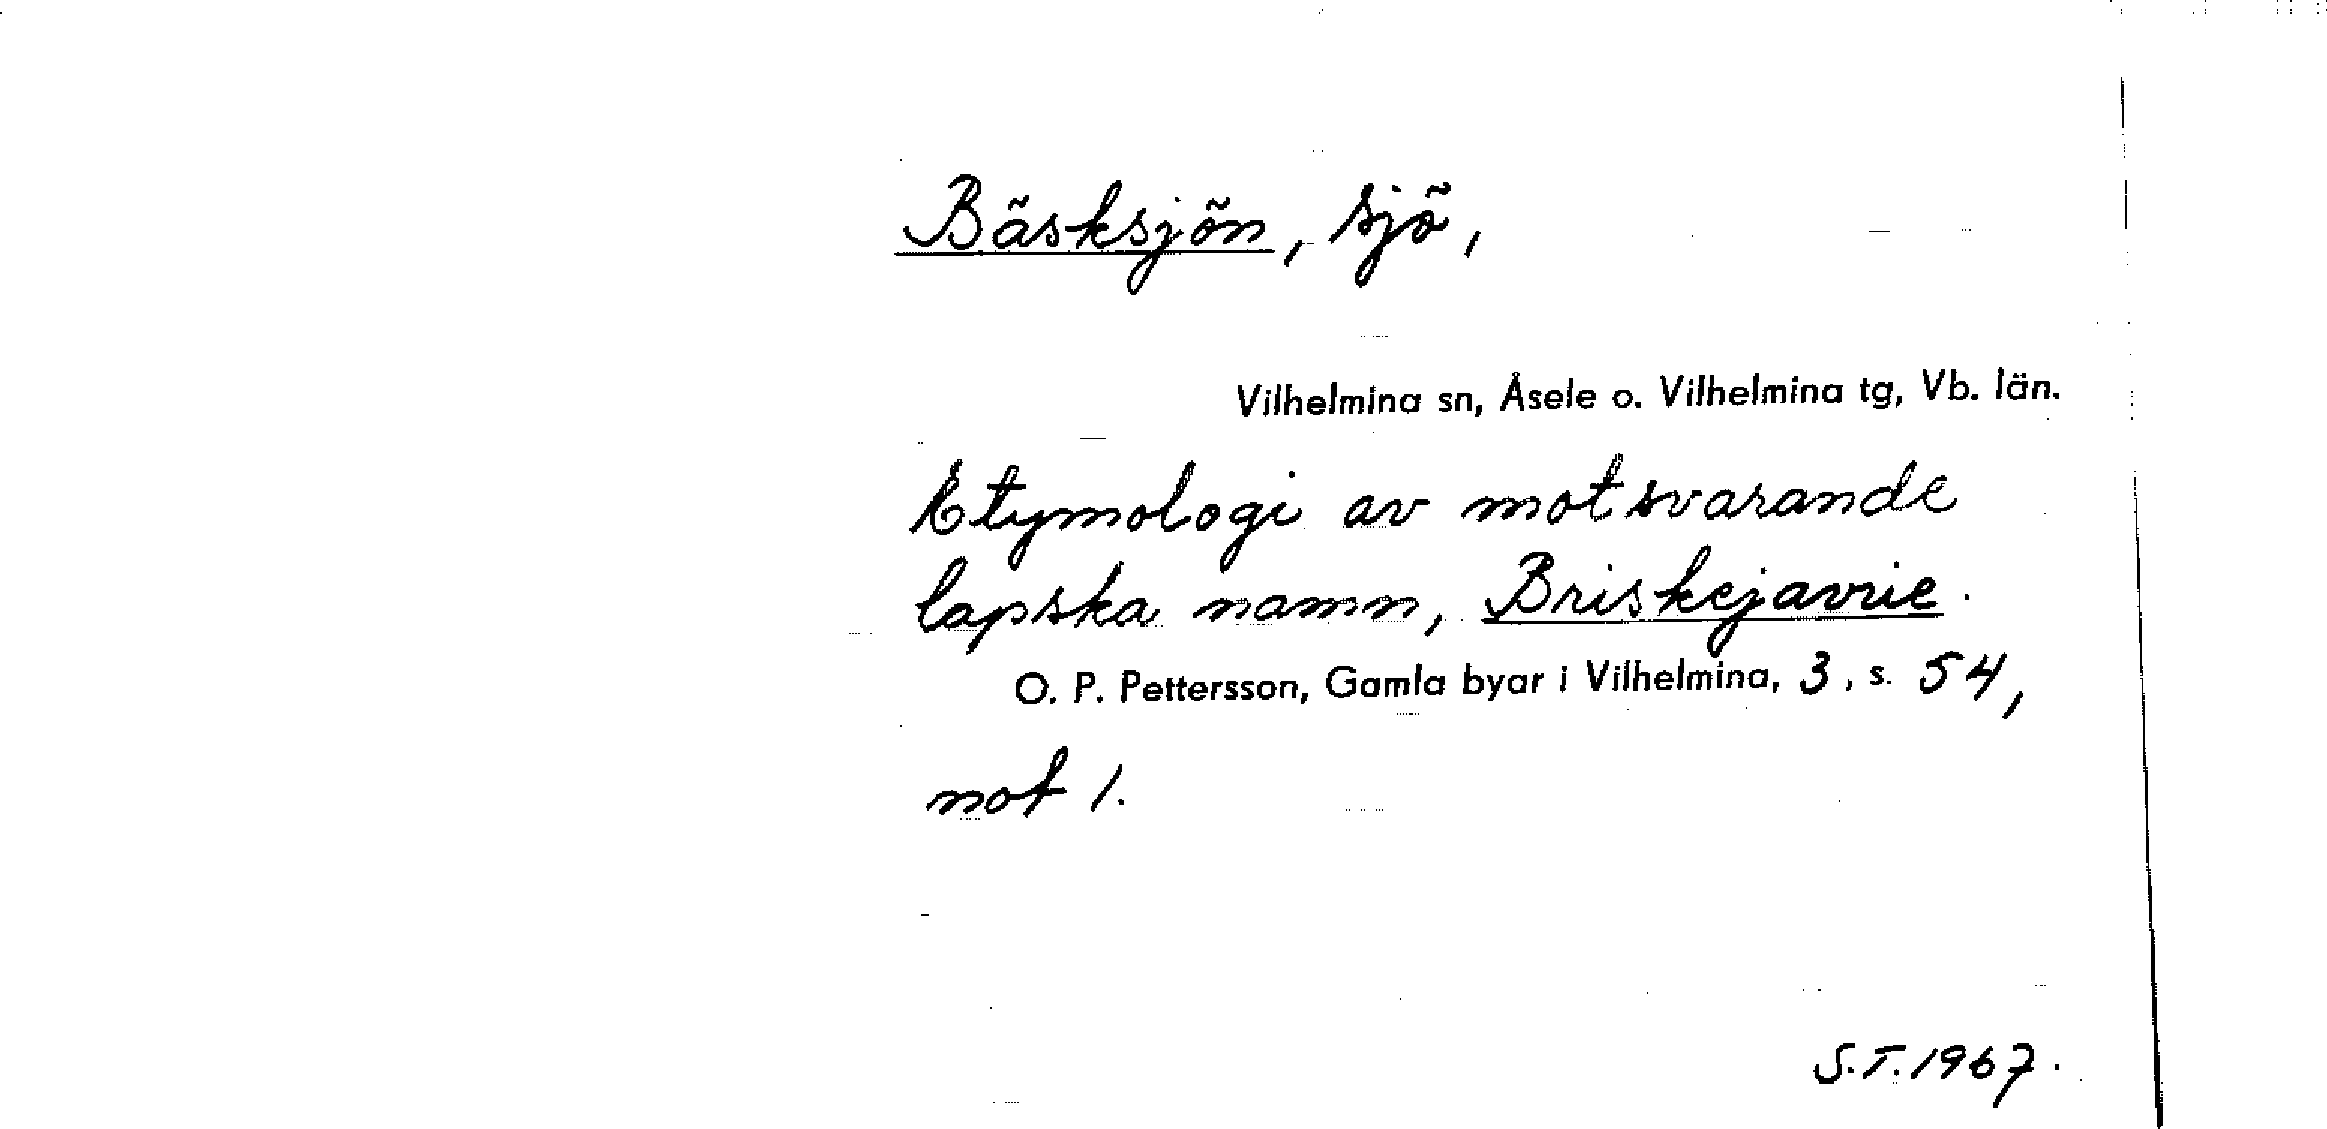 Bäsksjön, sjö,
Vilhelmina sn, Åsele o. Vilhelmina tg, Vb. län.
Etymologi av motsvarande
lapska namn, Briskejavrie.
O. P. Pettersson, Gamla byar i Vilhelmina, 3, s. 54,
not 1.
S.T. 1967.